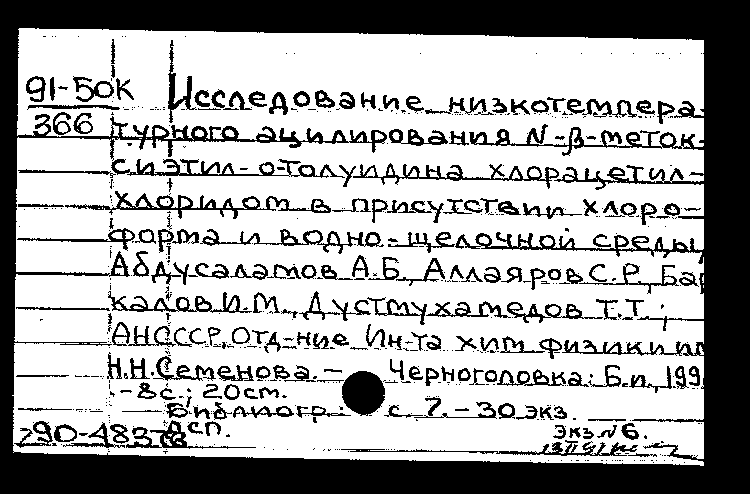 91-50К Исследование низкотемпера-
366 турного ацилирования N-β-меток-
сиэтил-о-толуидина хлорацетил-
хлоридом в присутствии хлоро-
форма и водно-щелочной среды
Абдусаламов А.Б., Аллаяров С.Р., Бар
калов И.М., Дустмухамедов Т.Т.;
АНСССР, Отд-ние Ин-та хим физики им
Н.Н.Семенова. - Черноголовка: Б.и., 199
- 8с.; 20cm.
Библиогр.: с. 7. - 30 экз.
ДСП. экз N 6.
90-48378